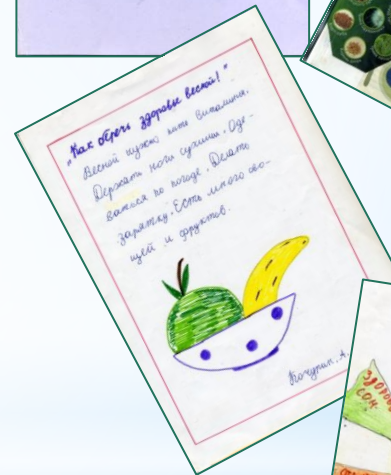 „Как сберечь здоровье весной!"
Весной нужно пить витамины.
Держать ноги сухими. Оде-
ваться по погоде. Делать
зарятку. Есть много ово-
щей и фруктов.
А.
ЗДОРОВ
СОН